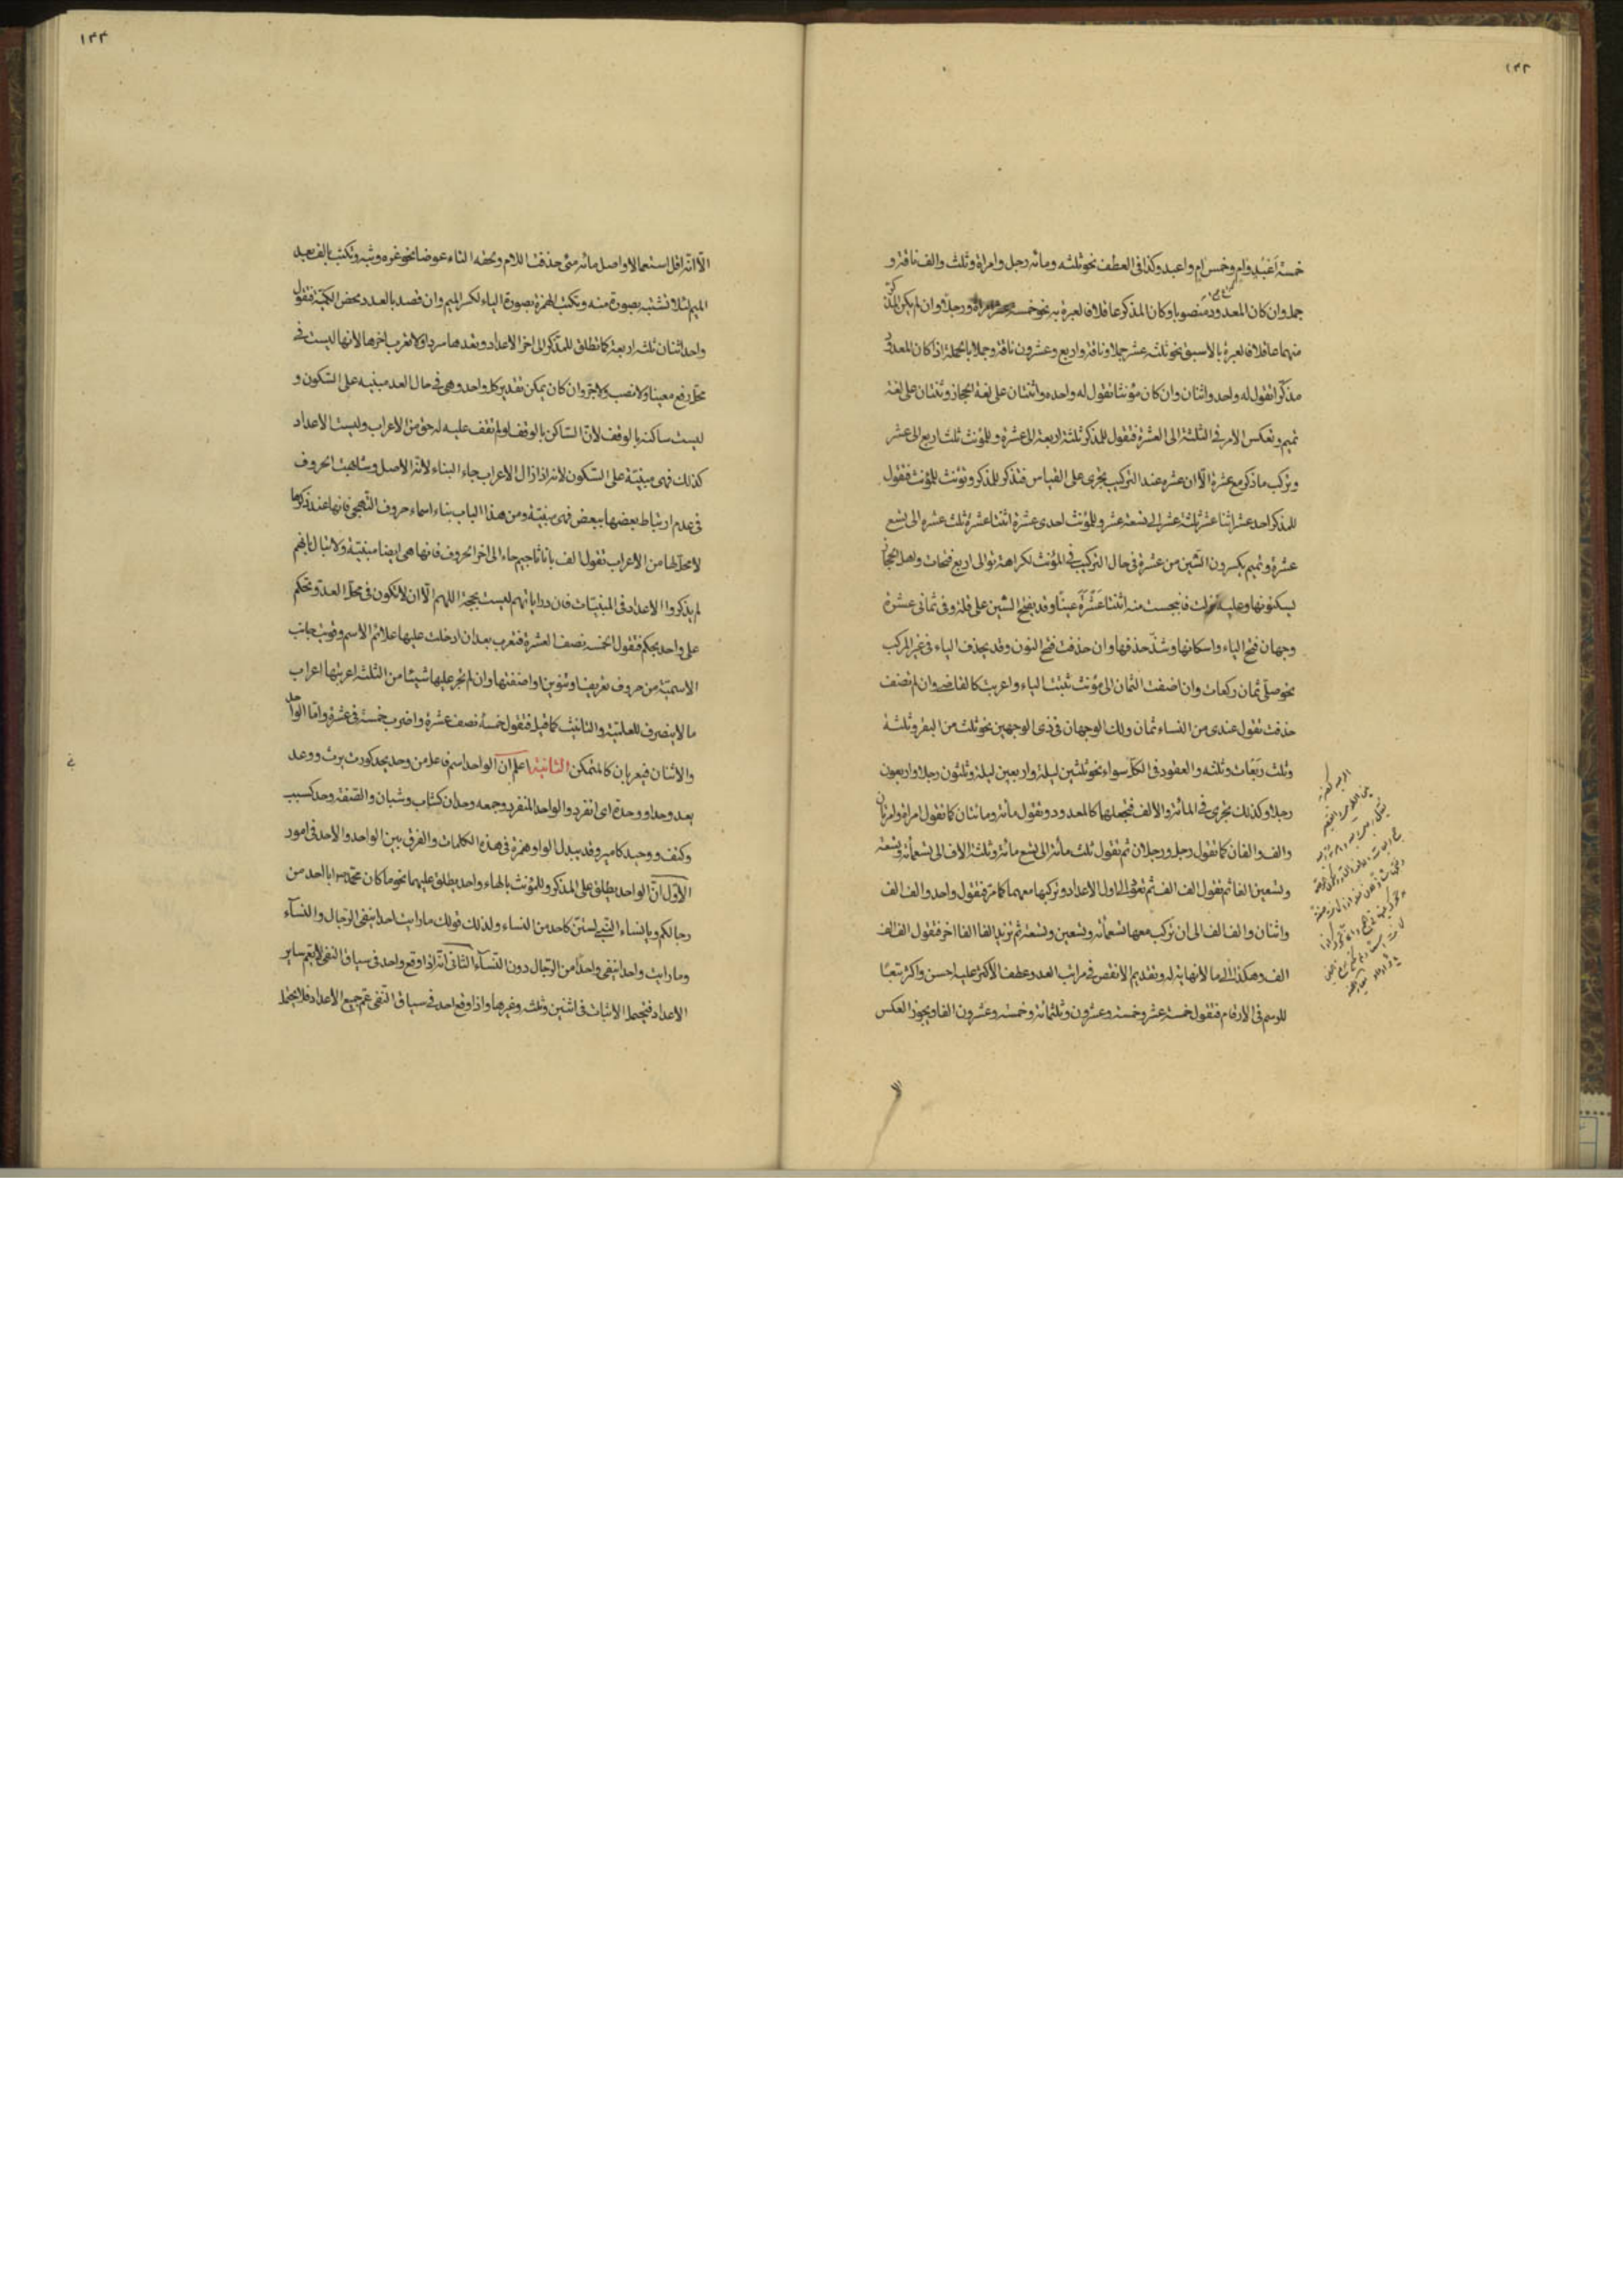 ١٣٣
خمسة اعبد وام وخمس ام واعبد وكذا فى العطف نحو ثلثه ومائه رجل وامراة وثلث والف ناقة و
جمل وان كان المعدود منصوبا وكان المذكر عاقلا فالعبرة به نحو خمسة عشر امراة ورجلا وان لم يكن المذكر
منهما عاقلا فالعبرة بالاسبق نحو ثلثه عشر جملا وناقة واربع وعشرون ناقة وجملا بالجملة اذا كان المعدود
مذكرا تقول له واحد واثنان وان كان مؤنثا تقول له واحده واثنتان على لغة الحجاز وثنتان على لغة
تميم وتعكس الامر فى الثلثة الى العشرة فتقول للمذكر ثلثة اربعة الى عشرة وللمؤنث ثلث اربع الى عشر
وتركب ما ذكر مع عشرة الّا ان عشره عند التركيب يجرى على القياس فتذكر للمذكر وتؤنث للمؤنث فتقول
للمذكر احد عشر اثنا عشر ثلثة عشر الى تسعة عشر وللمؤنث احدى عشرة اثنتا عشرة ثلث عشره الى تسع
عشرة وتميم يكسرون الشين من عشرة فى حال التركيب فى المؤنث لكراهة توالى اربع فتحات واهل الحجاز
يسكنونها وعليه نزلت فانبجست منه اثنتا عشرة عينا وقد يفتح الشين على قلة وفى ثمانى عشرة
وجهان فتح الياء واسكانها وشذّ حذفها وان حذفت فتح النون وقد يحذف الياء فى غير المركب
نحو صلّى ثمان ركعات وان اضفت الثمان الى مؤنث تثبت الياء واعربت كالقاضى وان لم تضف
حذفت تقول عندى من النساء ثمان ولك الوجهان فى ذى الوجهين نحو ثلث من البقر وثلثة
وثلث ربعات وثلثه والعقود فى الكل سواء نحو ثلثين ليلة واربعين ليلة وثلثون رجلا واربعون
رجلا وكذلك يجرى فى المائة والالف فتجعلهما كالمعدود وتقول مائة ومائتان كما تقول امراة وامرتان
والف والفان كما تقول رجل ورجلان ثم تقول ثلث مائة الى تسع مائة وثلثة الاف الى تسعمائة وتسعة
وتسعين الفا ثم تقول الف الف ثم تعود الى اول الاعداد وتركبها معهما كما مر فتقول واحد والف الف
واثنان والف الف الى ان تركب معها تسعمائه وتسعين وتسعة ثم تزيد الفا الفا اخر فتقول الف الف
الف وهكذا الى ما لانهاية له وتقديم الانقص فى مراتب العدد وعطف الاكثر عليه احسن واكثر تبعًا
للرسم فى الارقام فتقول خمسة عشر وخمسة وعشرون وثلثمائة وخمسة وعشرون الفا ويجوز العكس
الا
١٣٤
الّا انه اقل استعمالا واصل مائه مئى حذفت اللام وتحفه التاء عوضا نحو عزه وثبه وتكتب بالف بعد
الميم لئلا تشتبه بصورة منه وتكتب الهمزة بصورة الياء لكسر الميم وان قصد بالعدد محض الكمّية فتقول
واحد اثنان ثلثه اربعة كما تطلق للمذكر الى اخر الاعداد وتعدها سردا ولا تعرب اخرها لانها ليست فى
محلّ رفع معينا ولا نصب ولا جرّ وان كان يمكن تقدير كل واحد وهى فى حال العد مبنيه على السكون و
ليست ساكنة بالوقف لانّ الساكن بالوقف ولم تقف عليه له حق من الاعراب وليست الاعداد
كذلك فهى مبنيّة على السكون لانه اذا زال الاعراب جاء البناء لانه الاصل وشابهت الحروف
فى عدم ارتباط بعضها ببعض فهى مبنيّة ومن هذا الباب بناء اسماء حروف التهجى فانها عند ذكرها
لا محل لها من الاعراب تقول الف با تا ثا جيم حاء الى اخر الحروف فانها هى ايضا مبنيّة ولا تبال بانهم
لم يذكروا الاعداد فى المبنيّات فان دراياتهم ليست بحجة اللهم الّا ان لا تكون فى محل العدّ وتحكم
على واحد بحكم فتقول الخمسه نصف العشرة فتعرب بعد ان ادخلت عليها علائم الاسم وقويت جانب
الاسميّة من حروف تعريف او تنوين او اضفتها وان لم تجر عليها شيئا من الثلث اعربتها اعراب
ما لا ينصرف للعلميّة والتانيث كما قيل فتقول خمسةُ نصف عشرة واضرب خمسة فى عشرة وامّا الواحد
والاثنان فيعربان كالمتمكن الثانية اعلم ان الواحد اسم فاعل من وحد يحد كورث يرث ووعد
يعد وحدا ووحدة اى انفرد والواحد المنفرد وجمعه وحدان كشاب وشبان والصّفة وحد كسبب
وكتف ووحيد كامير وقد يبدل الواو همزة فى هذه الكلمات والفرق بين الواحد والاحد فى امور
الاول انّ الواحد يطلق على المذكر وللمؤنث بالهاء واحد يطلق عليهما نحو ما كان محمّد ابا احد من
رجالكم ويا نساء النبى لستنّ كاحد من النساء ولذلك قولك ما رايت احدا ينفى الرجال والنسآء
وما رايت واحدا ينفى واحدًا من الرّجال دون النّسآء الثانى انّه اذا وقع واحد فى سياق النفى لا يعم ساير
الاعداد فيحتمل الاثبات فى اثنين وثلث وغيرها واذا وقع احد فى سياق النفى عمّ جميع الاعداد فلا يحتمل